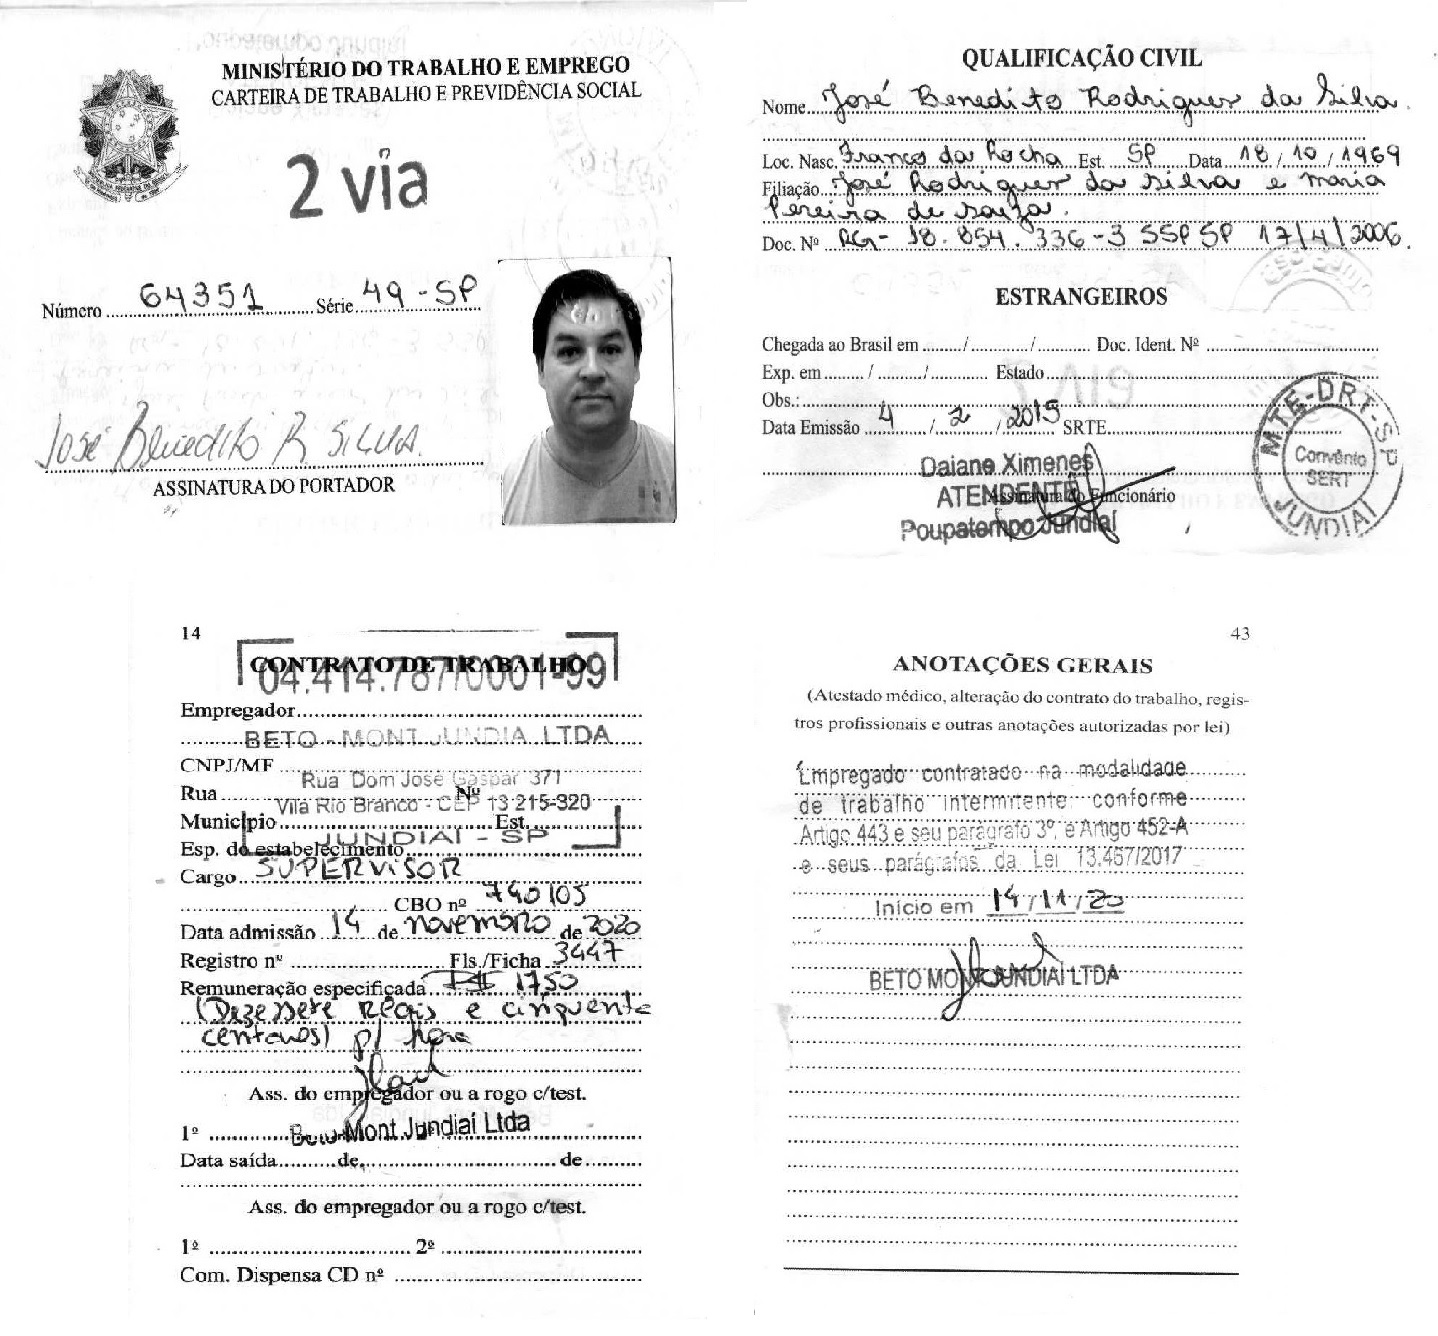 MINISTÉRIO DO TRABALHO E EMPREGO
CARTEIRA DE TRABALHO E PREVIDÊNCIA SOCIAL
2 via
Número 64351 Série 49-SP
José Benedito R Silva.
ASSINATURA DO PORTADOR
QUALIFICAÇÃO CIVIL
Nome José Benedito Rodrigues da Silva.
Loc. Nasc. Franco da Rocha Est. SP Data 18/10/1969
Filiação José Rodrigues da Silva e Maria
Pereira de Souza.
Doc. Nº RG- 18.854.336-3 SSPSP 17/4/2006.
ESTRANGEIROS
Chegada ao Brasil em / / Doc. Ident. Nº
Exp. em / / Estado
Obs.:
Data Emissão 4 / 2 / 2015 SRTE
Daiane Ximenes
ATENDENTE
Assinatura do Funcionário
Poupatempo Jundiaí
MTE-DRT-SP
Convênio
SERT
JUNDIAÍ
14
CONTRATO DE TRABALHO
04.414.787/0001-99
Empregador
BETO - MONT JUNDIAI LTDA
CNPJ/MF
Rua Dom José Gaspar 371
Rua Nº
Vila Rio Branco - CEP 13 215-320
Município Est.
JUNDIAÍ - SP
Esp. do estabelecimento
Cargo SUPERVISOR
CBO nº 740105
Data admissão 14 de novembro de 2020
Registro nº Fls./Ficha 3447
Remuneração especificada R$ 1750
(Dezessete Reais e cinquenta
centavos) p/ hora
Ass. do empregador ou a rogo c/test.
1º Beto-Mont Jundiaí Ltda
Data saída de de
Ass. do empregador ou a rogo c/test.
1º 2º
Com. Dispensa CD nº
43
ANOTAÇÕES GERAIS
(Atestado médico, alteração do contrato do trabalho, regis-
tros profissionais e outras anotações autorizadas por lei)
Empregado contratado na modalidade
de trabalho intermitente conforme
Artigo 443 e seu parágrafo 3º, e Artigo 452-A
e seus parágrafos da Lei 13.467/2017
Início em 14/11/20
BETO MONT JUNDIAÍ LTDA